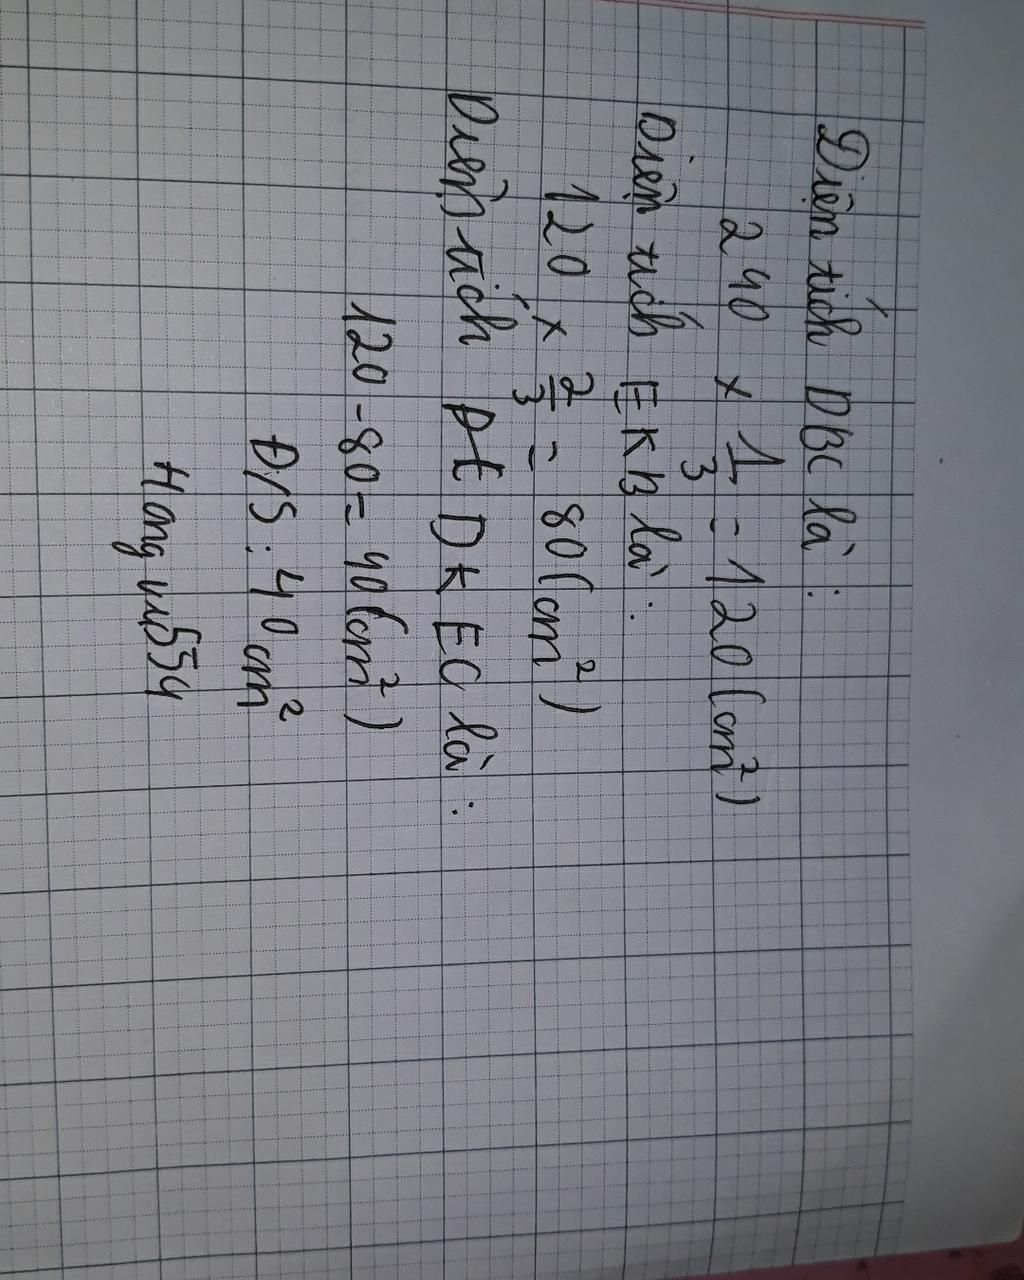 Diện tích DBC là :
240 × 1/3 = 120 (cm²)
Diện tích EKB là :
120 × 2/3 = 80 (cm²)
Diện tích DKEC là :
120 - 80 = 40 (cm²)
Đ/S : 40 cm²